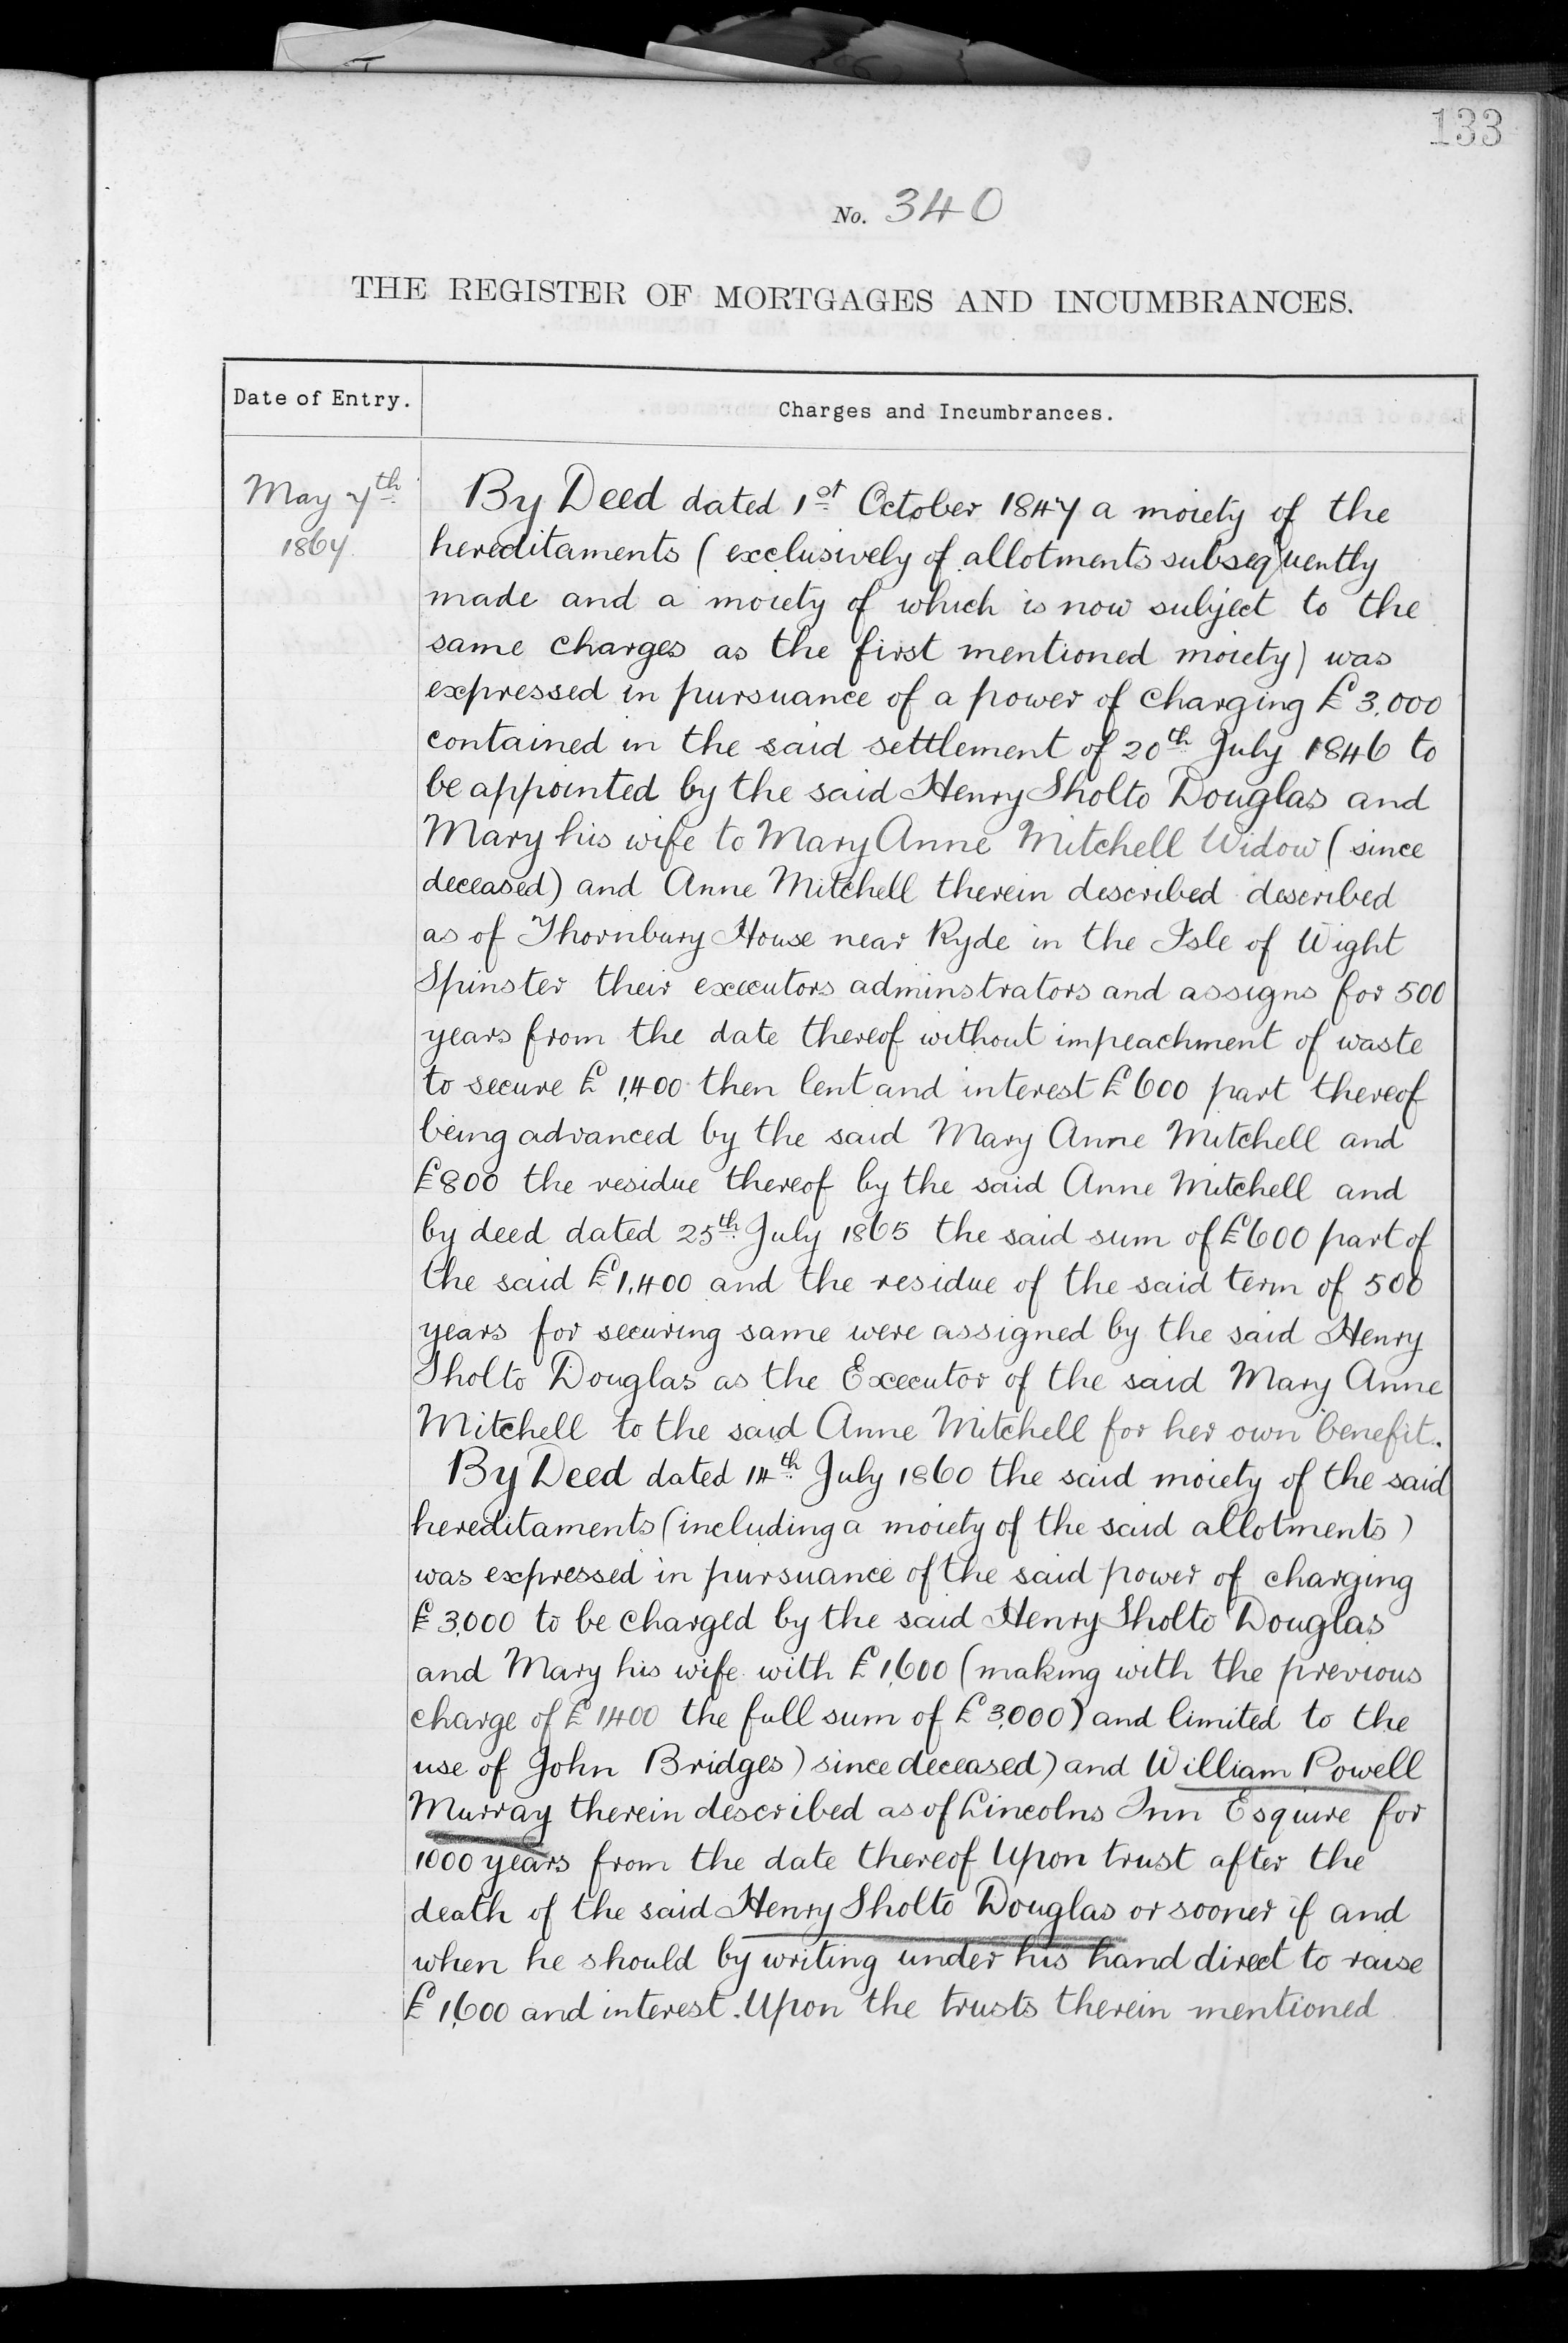 133
No. 340
THE REGISTER OF MORTGAGES AND INCUMBRANCES.
Date of Entry.
Charges and Incumbrances.
May 7th
1867.
By Deed dated 1st October 1847 a moiety of the
hereditaments (exclusively of allotments subsequently
made and a moiety of which is now subject to the
same charges as the first mentioned moiety) was
expressed in pursuance of a power of charging £3,000
contained in the said settlement of 20th July 1846 to
be appointed by the said Henry Sholto Douglas and
Mary his wife to Mary Anne Mitchell Widow (since
deceased) and Anne Mitchell therein described described
as of Thornbury House near Ryde in the Isle of Wight
Spinster their executors adminstrators and assigns for 500
years from the date thereof without impeachment of waste
to secure £1,400 then lent and interest £600 part thereof
being advanced by the said Mary Anne Mitchell and
£800 the residue thereof by the said Anne Mitchell and
by deed dated 25th July 1865 the said sum of £600 part of
the said £1,400 and the residue of the said term of 500
years for securing same were assigned by the said Henry
Sholto Douglas as the Executor of the said Mary Anne
Mitchell to the said Anne Mitchell for her own benefit.
By Deed dated 14th July 1860 the said moiety of the said
hereditaments (including a moiety of the said allotments)
was expressed in pursuance of the said power of charging
£3,000 to be charged by the said Henry Sholto Douglas
and Mary his wife with £1,600 (making with the previous
charge of £1,400 the full sum of £3,000) and limited to the
use of John Bridges) since deceased) and William Powell
Murray therein described as of Lincolns Inn Esquire for
1000 years from the date thereof Upon trust after the
death of the said Henry Sholto Douglas or sooner if and
when he should by writing under his hand direct to raise
£1,600 and interest. Upon the trusts therein mentioned